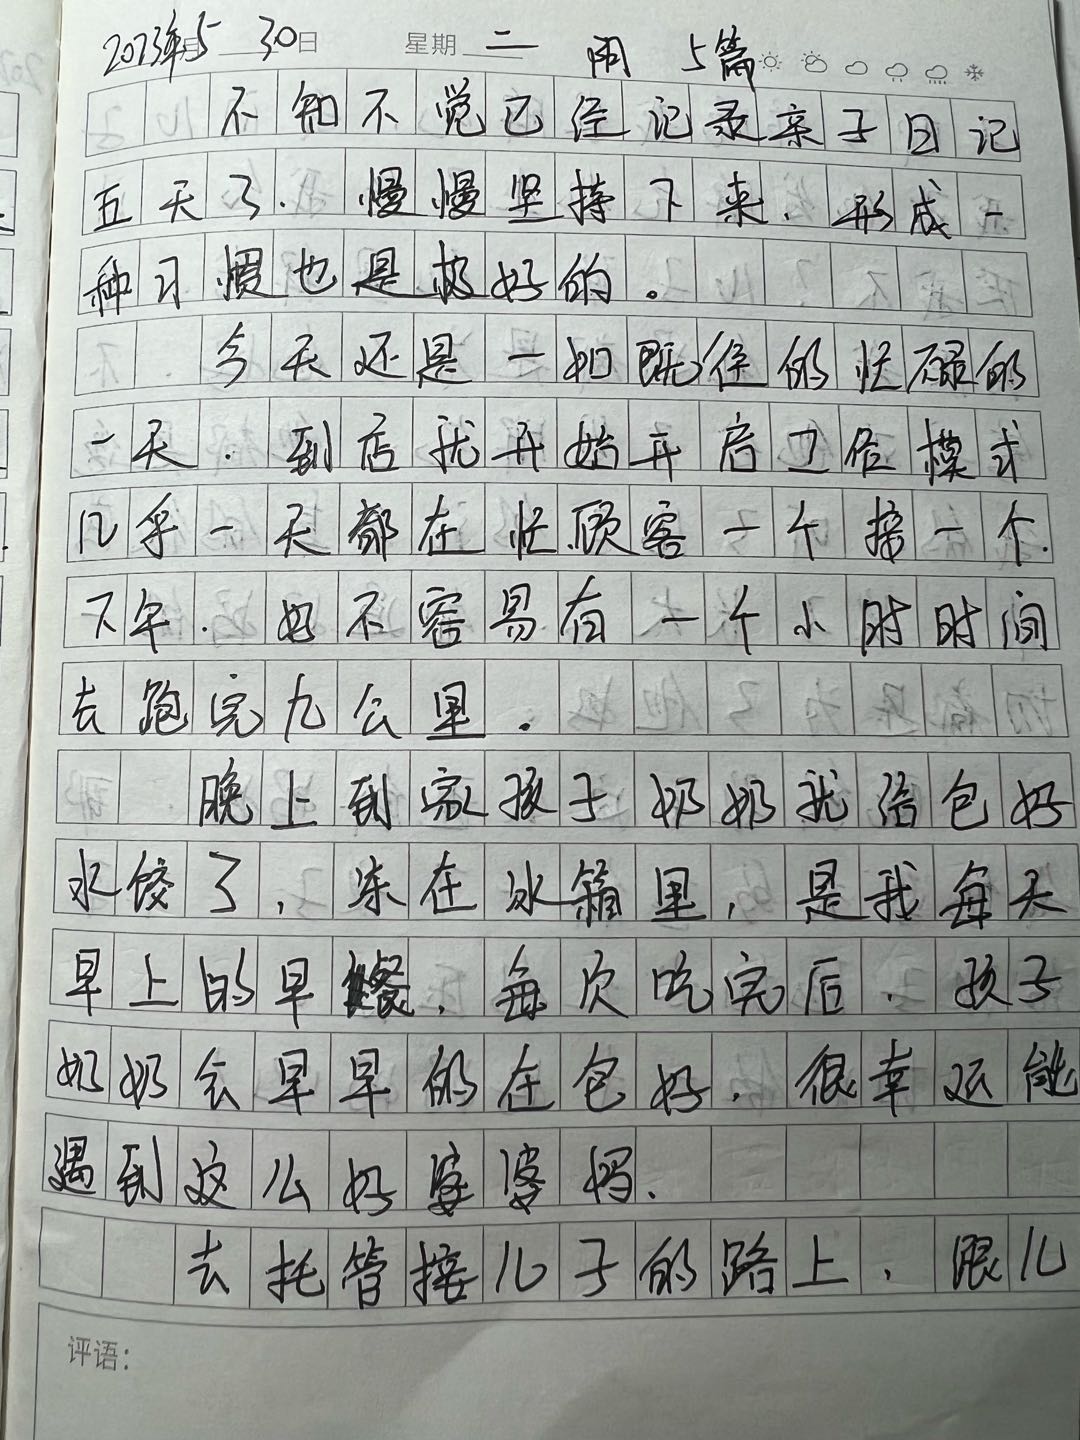 2023年5月30日 星期二 雨 5篇
不知不觉已经记录亲子日记
五天了.慢慢坚持下来.形成一
种习惯也是极好的。
今天还是一如既往的忙碌的
一天.到店就开始开启工作模式
几乎一天都在忙顾客一个接一个.
下午.好不容易有一个小时时间
去跑完九公里.
晚上到家孩子奶奶我给包好
水饺了,冻在冰箱里,是我每天
早上的早餐.每次吃完后.孩子
奶奶会早早的在包好.很幸运能
遇到这么好婆婆妈.
去托管接儿子的路上.跟儿
评语: